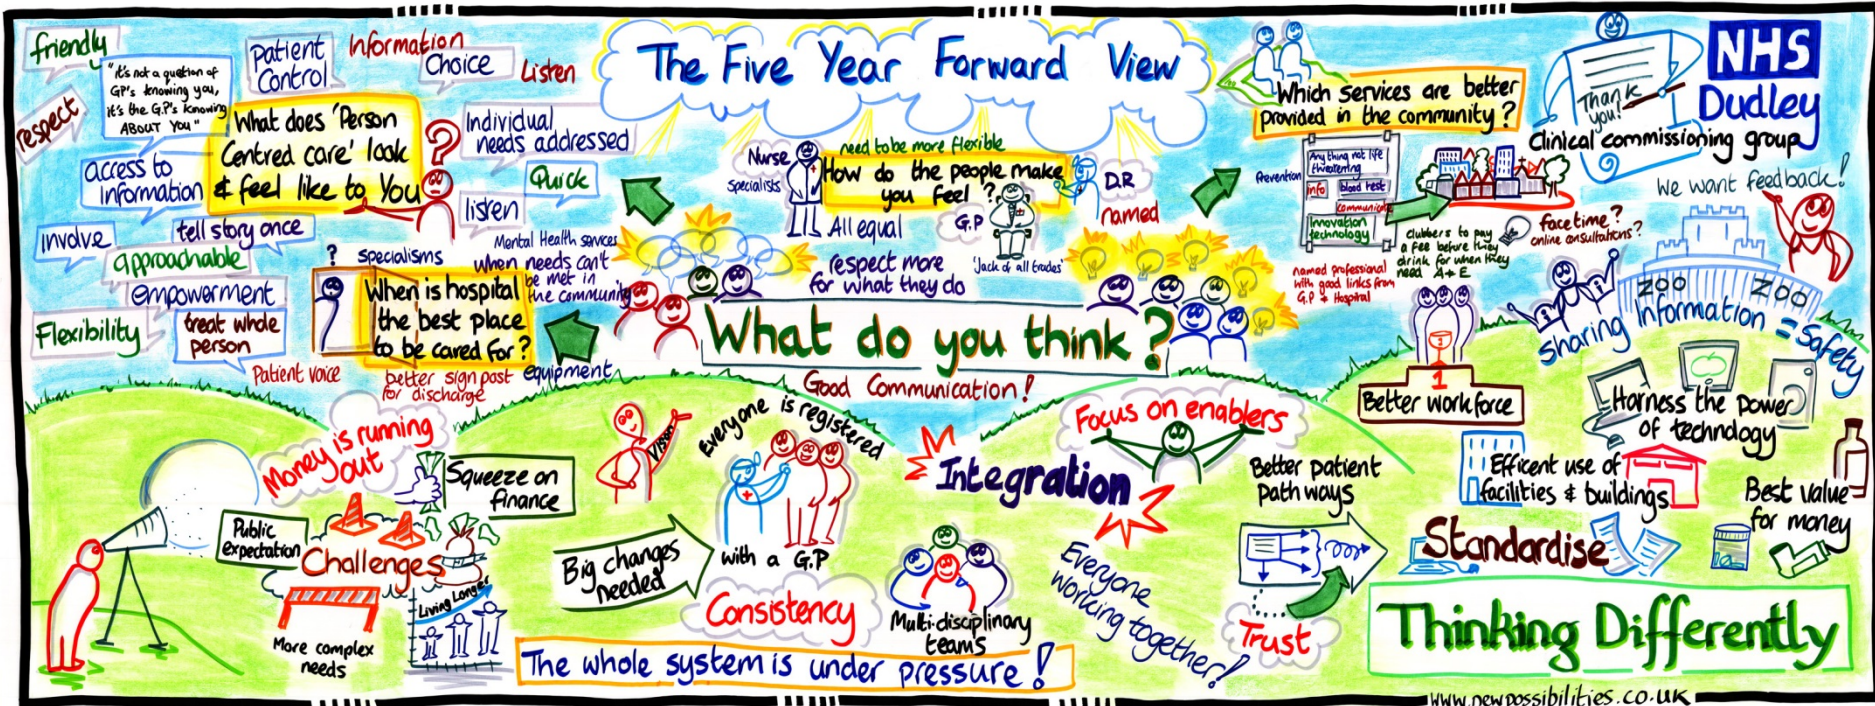 The Five Year Forward View
friendly
respect
"it's not a question of
GP's knowing you,
it's the G.P's knowing
ABOUT YOU"
Patient
Control
Information
Choice
Listen
What does 'Person
Centred care' look
& feel like to You
?
Individual
needs addressed
Quick
listen
access to
Information
involve
tell story once
approachable
empowerment
Flexibility
treat whole
person
Patient voice
?
specialisms
When is hospital
the best place
to be cared for?
Mental Health services
when needs can't
be met in
the community
better sign post
for discharge
equipment
need to be more flexible
How do the people make
you feel?
Nurse
Specialists
All equal
G.P
'Jack of all trades'
D.R
named
respect more
for what they do
What do you think?
Good Communication!
Which services are better
provided in the community?
Prevention
Any thing not life
threatening
info
blood test
communicate
Innovation
technology
named professional
with good links from
G.P & Hospital
clubbers to pay
a fee before they
drink for when they
need A+E
face time?
online consultations?
Thank
you!
NHS
Dudley
Clinical commissioning group
We want feedback!
Sharing Information = Safety
ZOO
ZOO
1
Better workforce
Harness the power
of technology
Efficent use of
facilities & buildings
Best value
for money
Standardise
Thinking Differently
Money is running
out
Squeeze on
finance
Public
expectation
Challenges
More complex
needs
Living Longer
Vision
Everyone is registered
with a G.P
Big changes
needed
Consistency
Integration
Focus on enablers
Multi-disciplinary
teams
Everyone
working together!
Better patient
path ways
Trust
The whole system is under pressure!
www.newpossibilities.co.uk